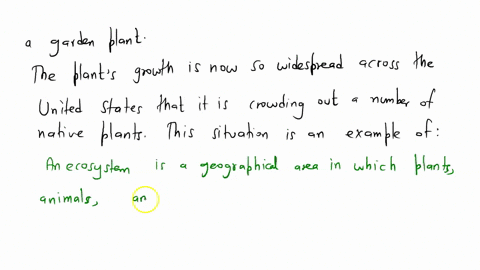 a garden plant.
The plant's growth is now so widespread across the
United States that it is crowding out a number of
native plants. This situation is an example of:
An ecosystem is a geographical area in which plants,
animals, an